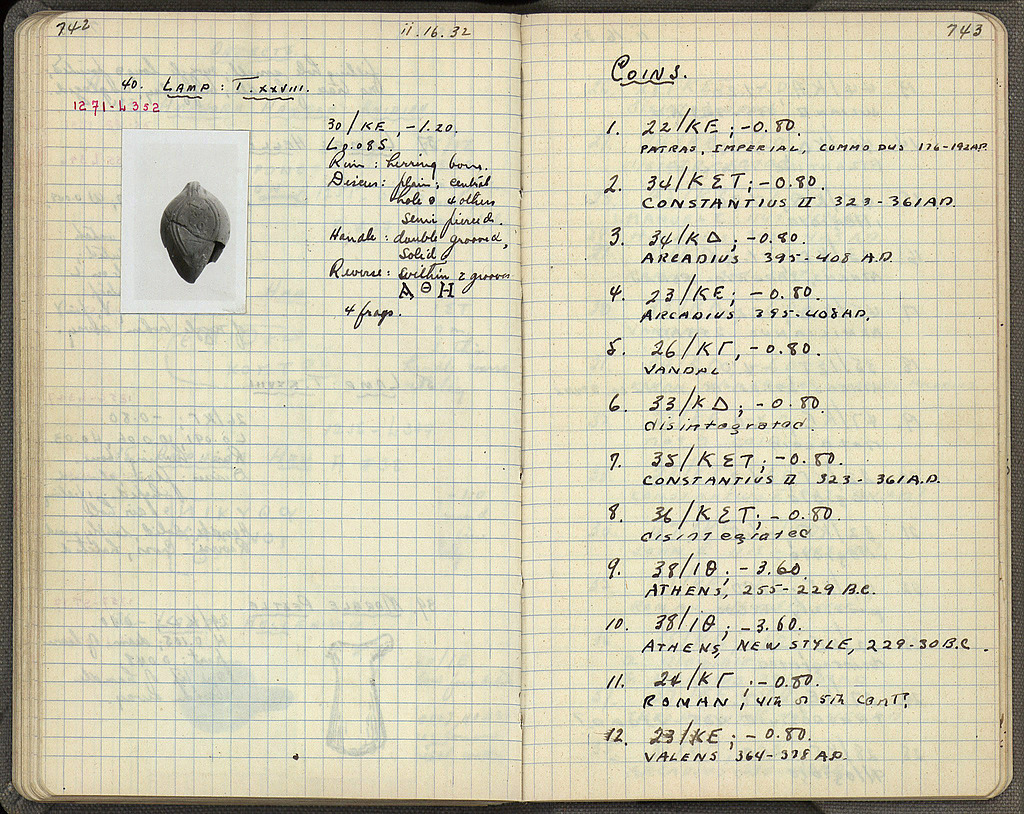 742
ii.16.32
40. LAMP: T. XXVIII.
1271-L352
30/KE, -1.20.
Lp.085.
Rim: herring bone.
Discus: plain; central
hole & 4 others
semi pierced.
Handle: double grooved,
solid
Reverse: within 2 grooves
Α Θ Η
4 frags.
743
COINS.
1. 22/KE; -0.80.
PATRAS, IMPERIAL, COMMODUS 176-192 AD.
2. 34/KΣT; -0.80.
CONSTANTIUS II 323-361 AD.
3. 34/KΔ; -0.80.
ARCADIUS 395-408 A.D.
4. 23/KE; -0.80.
ARCADIUS 395-408 AD.
5. 26/KΓ, -0.80.
VANDAL
6. 33/KΔ; -0.80.
disintegrated.
7. 35/KΣT; -0.80.
CONSTANTIUS II 323-361 A.D.
8. 36/KΣT; -0.80.
disintegrated
9. 38/ΙΘ; -3.60.
ATHENS, 255-229 B.C.
10. 38/ΙΘ; -3.60.
ATHENS, NEW STYLE, 229-30 B.C.
11. 24/KΓ; -0.80.
ROMAN; 4th or 5th cent?
12. 23/KE; -0.80.
VALENS 364-378 A.D.